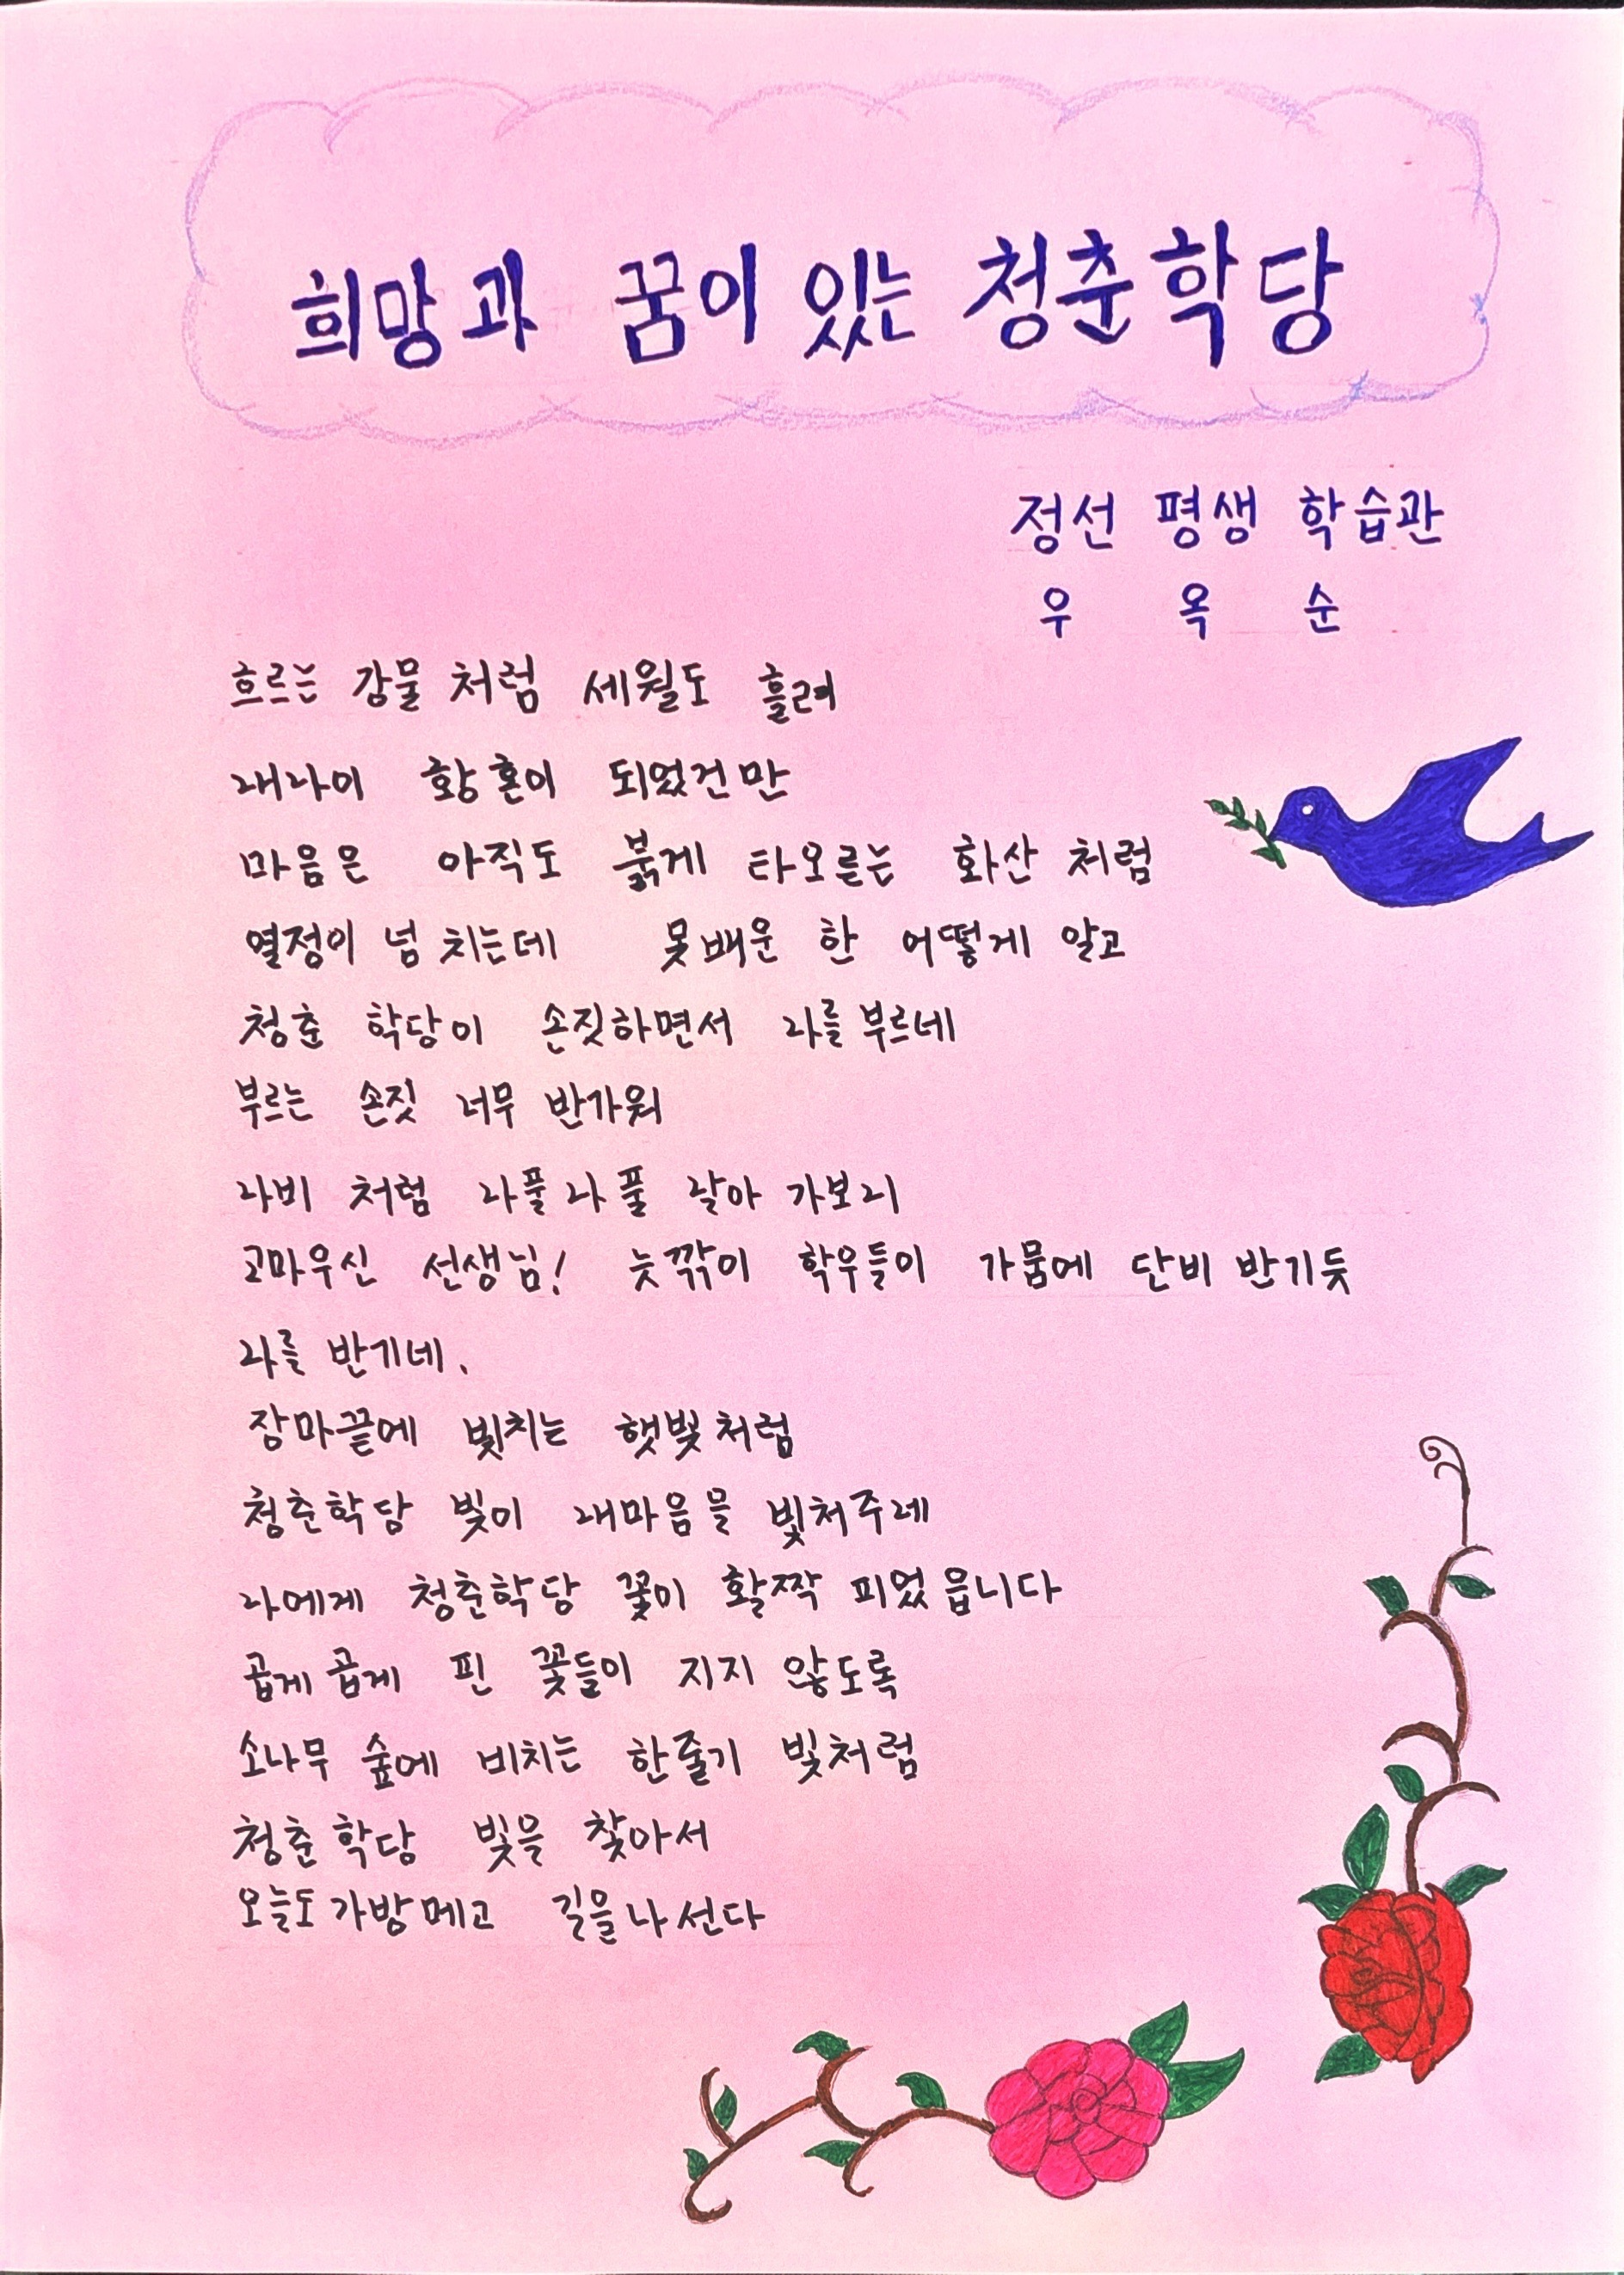 희망과 꿈이 있는 청춘학당
정선 평생 학습관
우 옥 순
흐르는 강물 처럼 세월도 흘러
내나이 황혼이 되었건만
마음은 아직도 붉게 타오를는 화산 처럼
열정이 넘 치는데 못배운 한 어떻게 알고
청춘 학당이 손짓하면서 나를 부르네
부르는 손짓 너무 반가워
나비 처럼 나풀나풀 날아 가보니
고마우신 선생님! 늣깎이 학우들이 가뭄에 단비 반기듯
나를 반기네.
장마끝에 빛치는 햇빛처럼
청춘학당 빛이 내마음을 빛처주레
나에게 청춘학당 꽃이 활짝 피었읍니다
곱게곱게 핀 꽃들이 지지 않도록
소나무 숲에 비치는 한줄기 빛처럼
청춘학당 빛을 찾아서
오늘도 가방메고 길을나선다